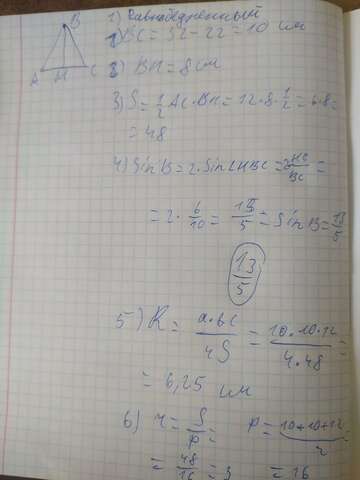 B
A H C
1) Равнобедренный
2) BC = 32 - 22 = 10 см
3) BH = 8 см
3) S = 1/2 AC · BH = 12 · 8 · 1/2 = 6 · 8 =
= 48
4) Sin B = 2 · Sin LHBC = 2 HC/BC =
= 2 · 6/10 = 13/5 = Sin B = 13/5
13/5
5) R = a·bc/4S = 10·10·12/4·48 =
= 6,25 см
6) r = S/p = p = 10+10+12/2 =
= 48/16 = 3 = 16